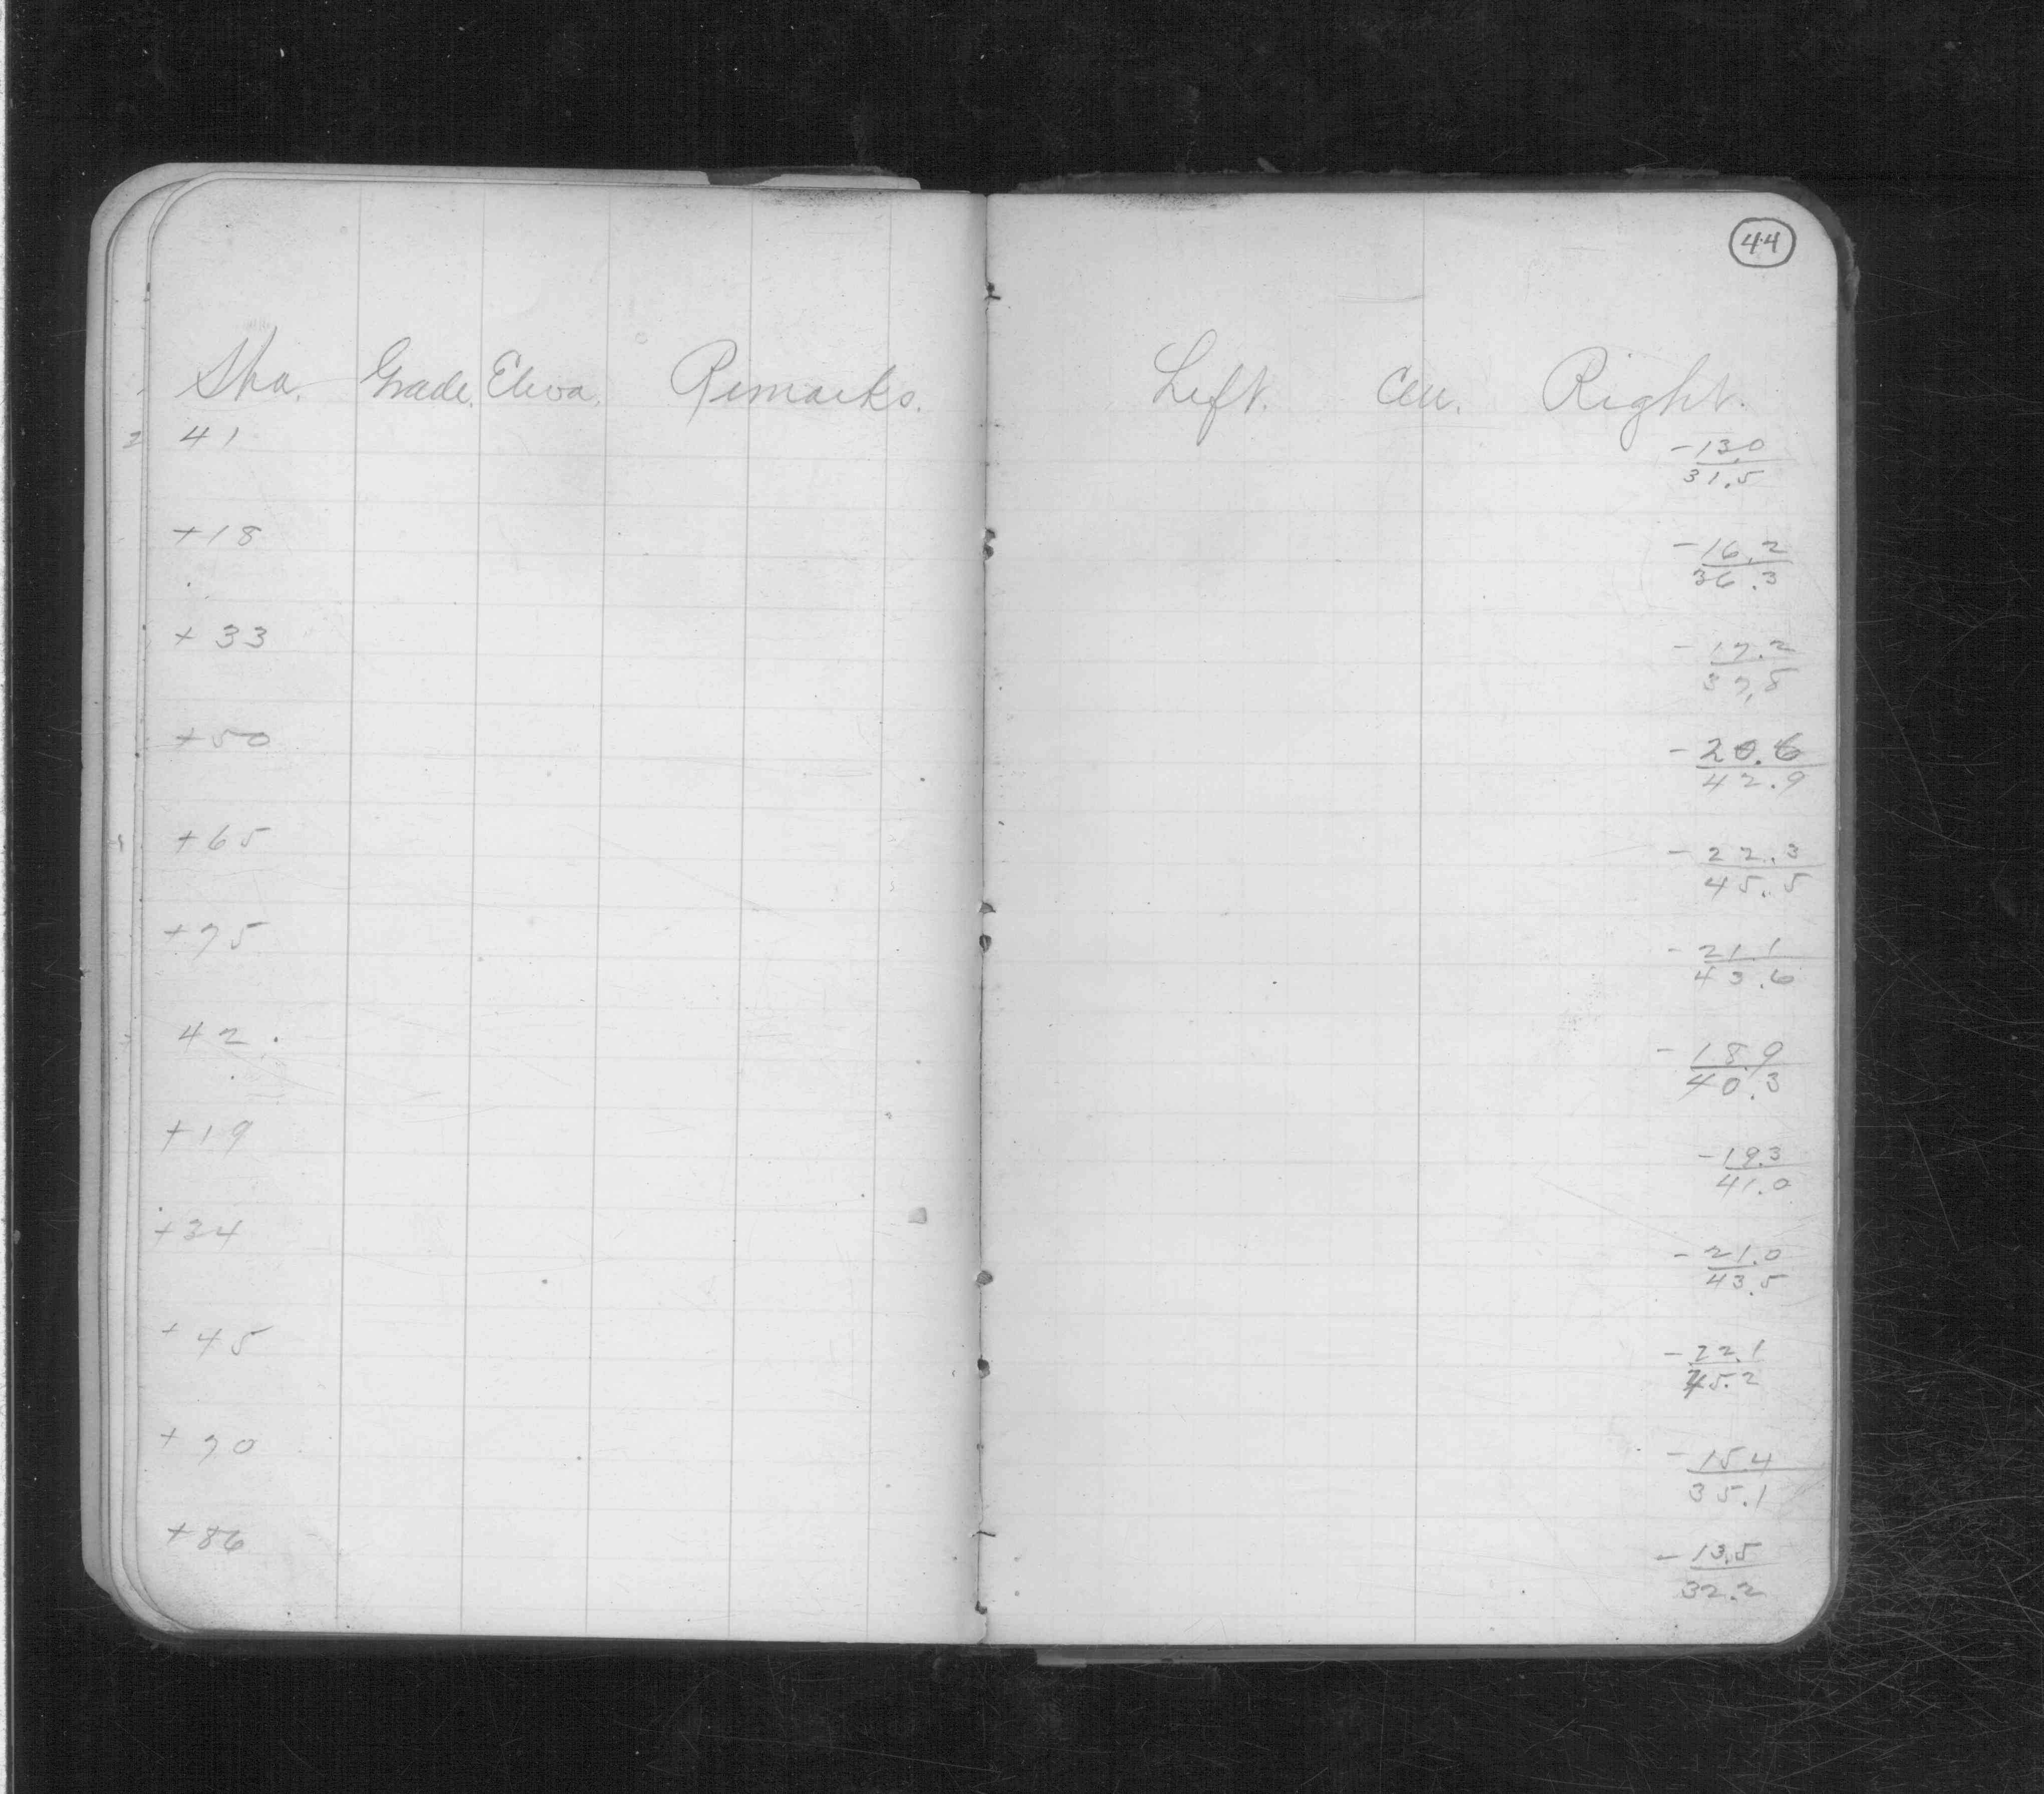 44
Sta. Grade. Eleva. Remarks. Left. Cen. Right.
41 -13.0
31.5
+18 -16.2
36.3
+33 -17.2
37.8
+50 -20.6
42.9
+65 -22.3
45.5
+75 -21.1
43.6
42. -18.9
40.3
+19 -19.3
41.0
+34 -21.0
43.5
+45 -22.1
45.2
+70 -15.4
35.1
+86 -13.5
32.2